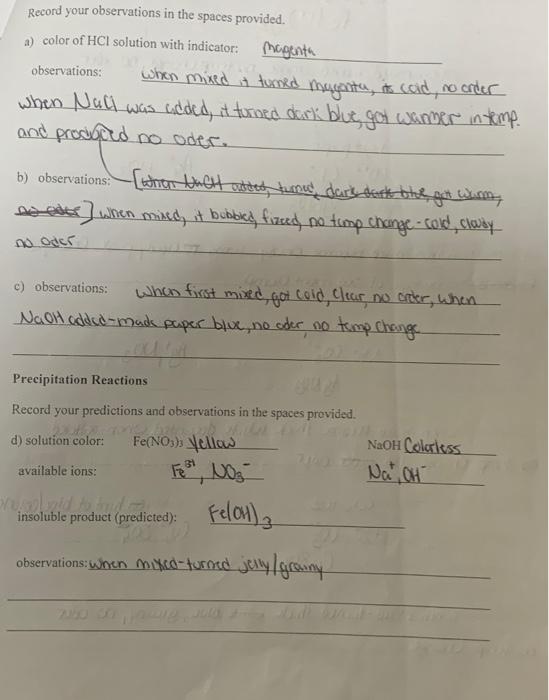 Record your observations in the spaces provided.
a) color of HCl solution with indicator: Magenta
observations: when mixed it turned magenta, is cold, no order
when NaCl was added, it turned dark blue, got warmer in temp.
and produced no oder.
b) observations: [when NaOH added, turned dark dark blue, got warm,
no oder] when mixed, it bubbled, fizeed, no temp change - cold, clowdy
no oder
c) observations: when first mixed, got cold, clear, no order, when
NaOH added-made paper blue, no oder, no temp change
Precipitation Reactions
Record your predictions and observations in the spaces provided.
d) solution color: Fe(NO₃)₃ Yellow NaOH Colorless
available ions: Fe³⁺, NO₃⁻ Na⁺, OH⁻
insoluble product (predicted): Fe(OH)₃
observations: when mixed-turned jelly/grainy